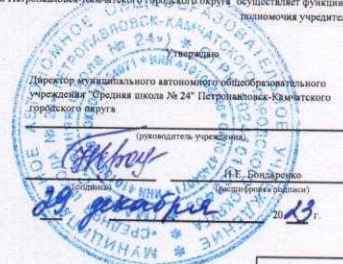 Петропавловск-Камчатского городского округа осуществляет функции
полномочия учредител
Утверждаю
Директор муниципального автономного общеобразовательного
учреждения "Средняя школа № 24" Петропавловск-Камчатского
городского округа
(руководитель учреждения)
И.Е. Бондаренко
(подпись) (расшифровка подписи)
29 декабря 2023 г.